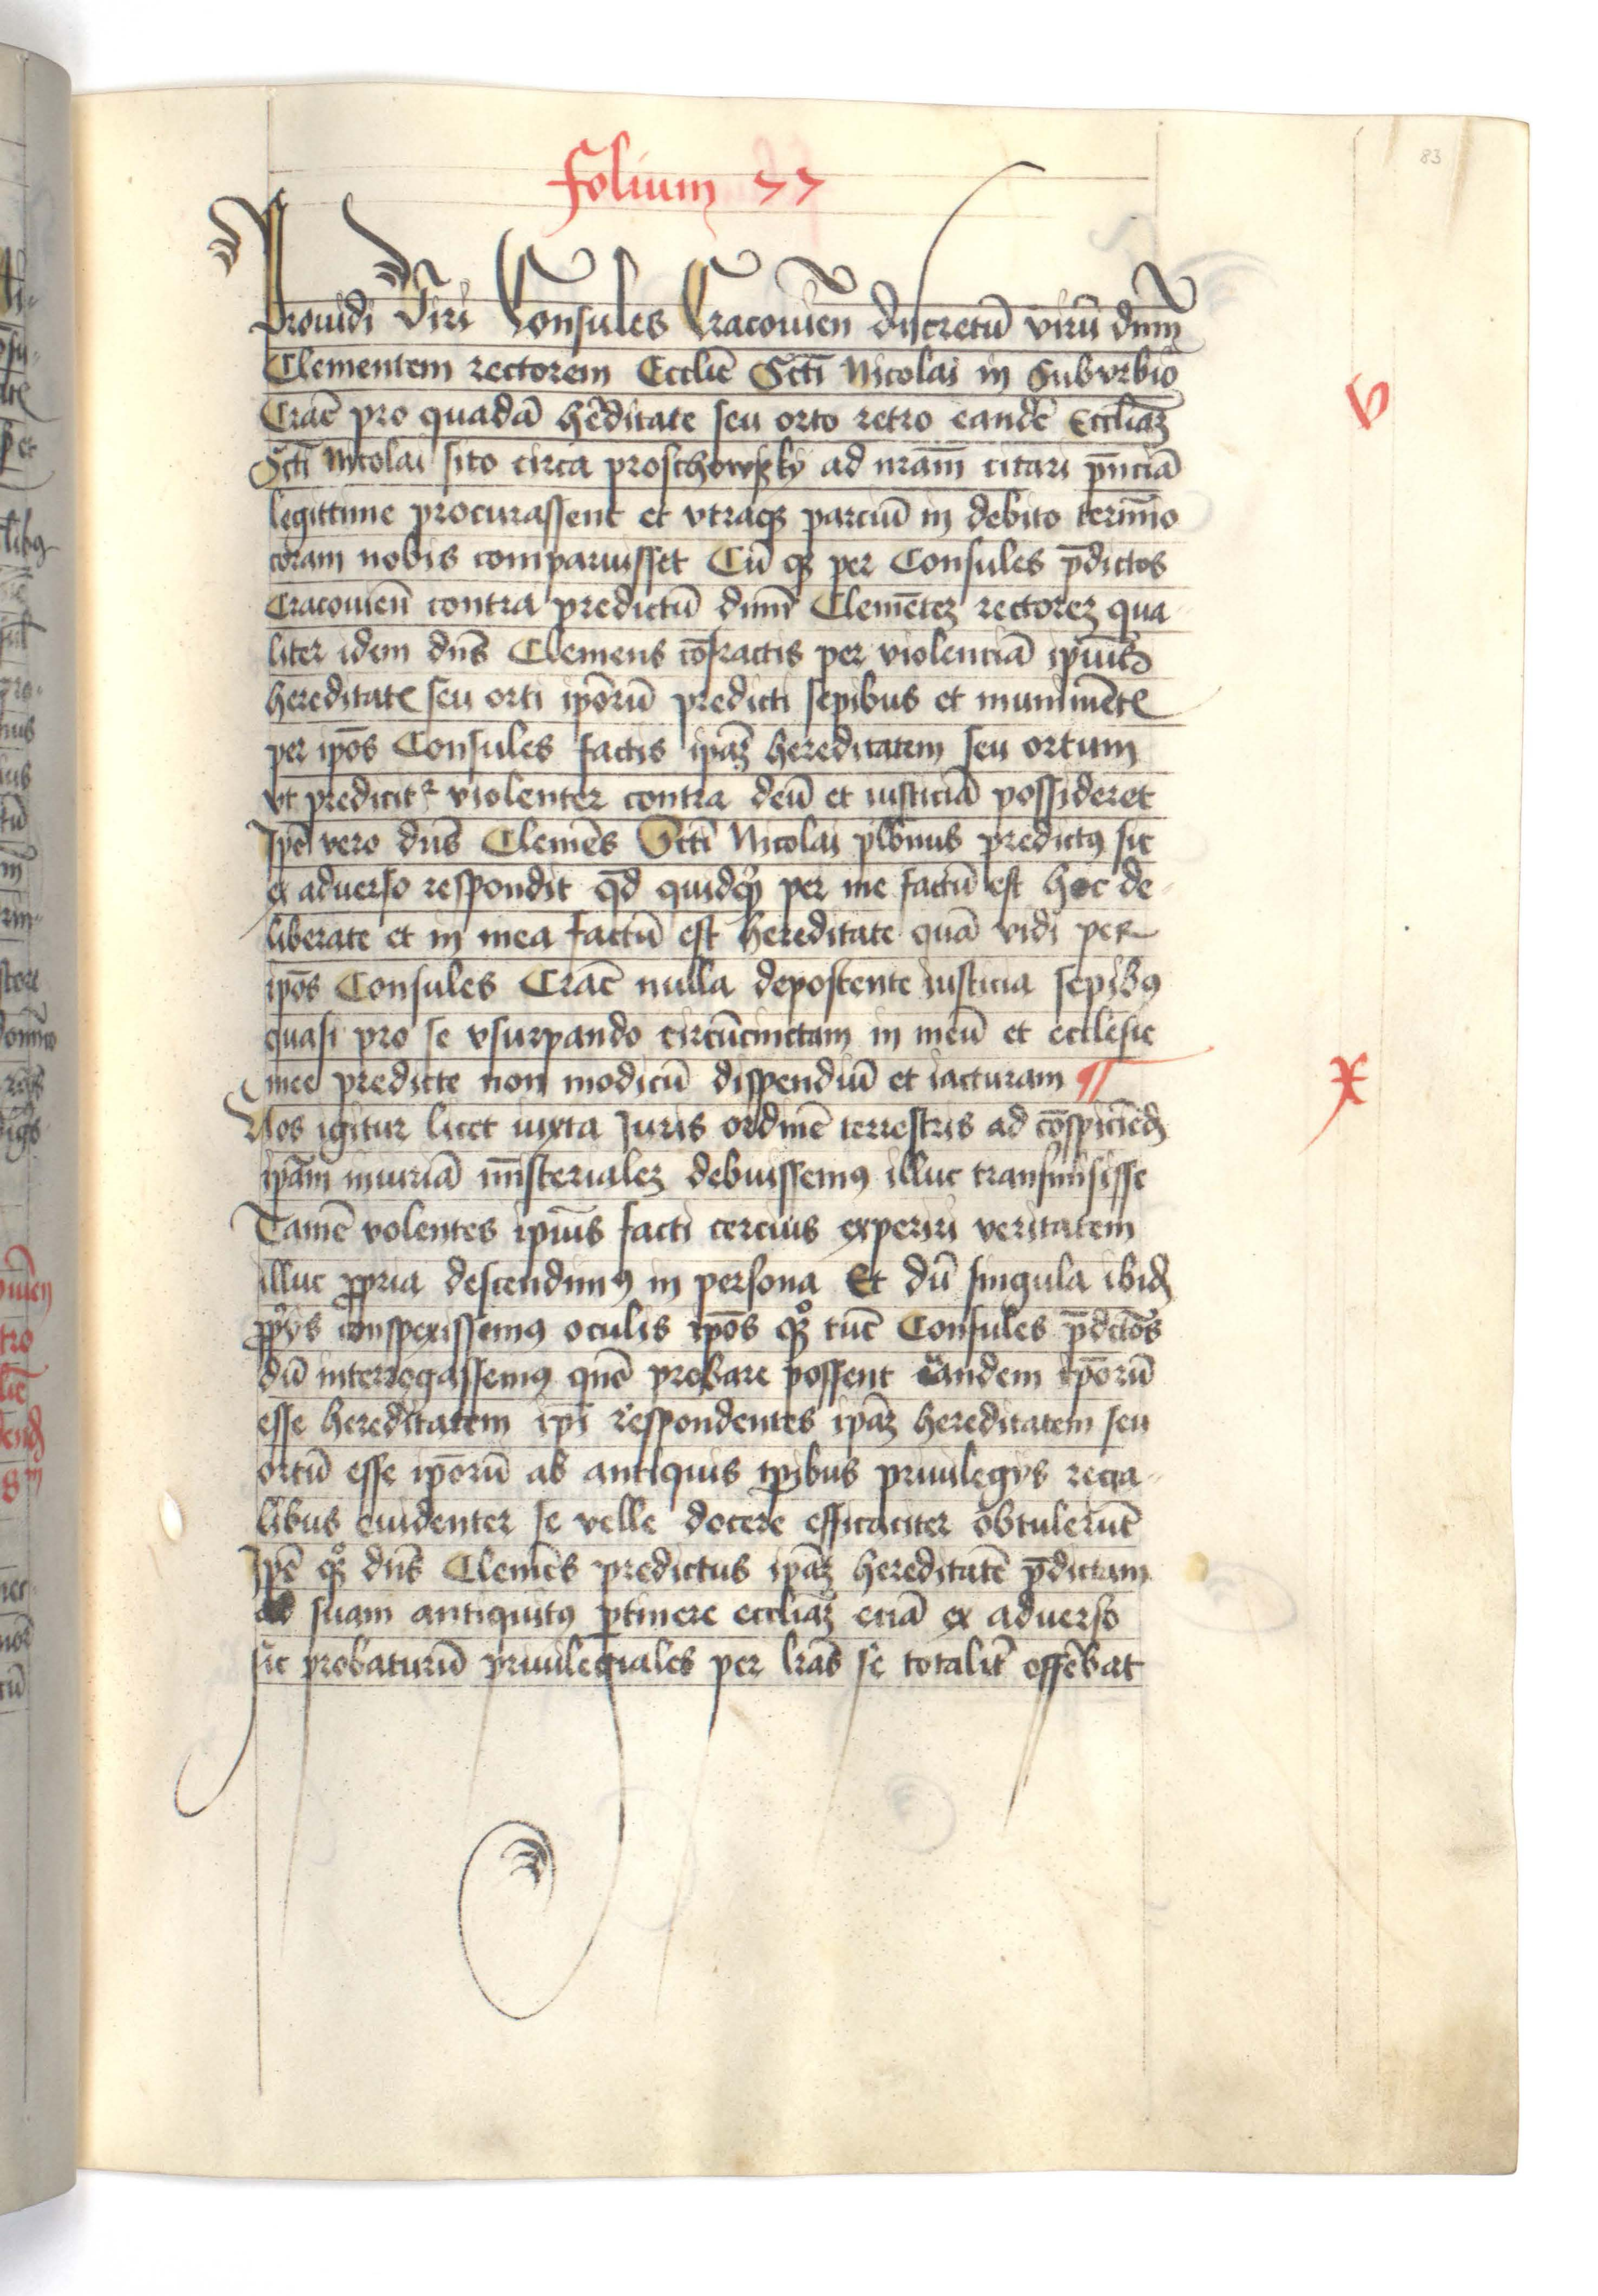 83
folium 77
Prouidi Viri Consules Cracouień discretū virū dnm̄
Clementem rectorem Ecclīe Sctī Nicolai in Suburbio
Crac̄ pro quadā hēditate seu orto retro eandē Eccliaʒ̄
Sctī Nicolai sito circa proschowsky ad nram̄ citari pn̄ciā
legittime procurassent et vtraqʒ parciū in debito termīo
coram nobis comparuisset Cū qʒ per Consules p̄dictos
Cracouień contra predictū dnm̄ Clemēteʒ rectoreʒ qua-
liter idem dn̄s Clemens cōfractis per violenciā ipīus
hereditatꝭ seu orti ipōrū predicti sepibus et munimētꝭ
per ipōs Consules factis ipāʒ hereditatem seu ortum
vt predicitr violenter contra deū et iusticiā possideret
Ipē vero dn̄s Clemēs Sctī Nicolai plb̄nus predictꝰ sic
ex aduerso respondit qd̄ quidqʒ per me factū est hoc de-
liberate et in mea factū est hereditate quā vidi per
ipōs Consules Crac̄ nulla deposcente iusticia sepibꝰ
quasi pro se vsurpando circūcinctam in meū et ecclesie
mee predicte non modicū dispendiū et iacturam ¶
Nos igitur licet iuxta Juris ordinē terrestris ad cōspiciēdꝭ
ipām iniuriā mīsterialeʒ debuissemꝰ illuc transmisisse
Tamē volentes ipīus facti cercius experiri veritatem
illuc ꝓpria descendimꝰ in persona Et dū singula ibidꝭ
ꝓprijs conspexissemꝰ oculis ipōs qʒ tūc Consules p̄dctōs
dū interrogassemꝰ quō probare possent eandem ipōrū
esse hereditatem ipī respondentes ipāʒ hereditatem seu
ortū esse ipōrū ab antiquis tp̄ibus priuilegijs regia-
libus euidenter se velle docere efficaciter obtulerūt
Ipē qʒ dn̄s Clemēs predictus ipāʒ hereditatē p̄dictam
ad suam antiquitꝰ ꝑtinere eccliaʒ̄ eciā ex aduerso
sic probaturū priuilegiales per lrās se totalit̄ offēbat
v
x